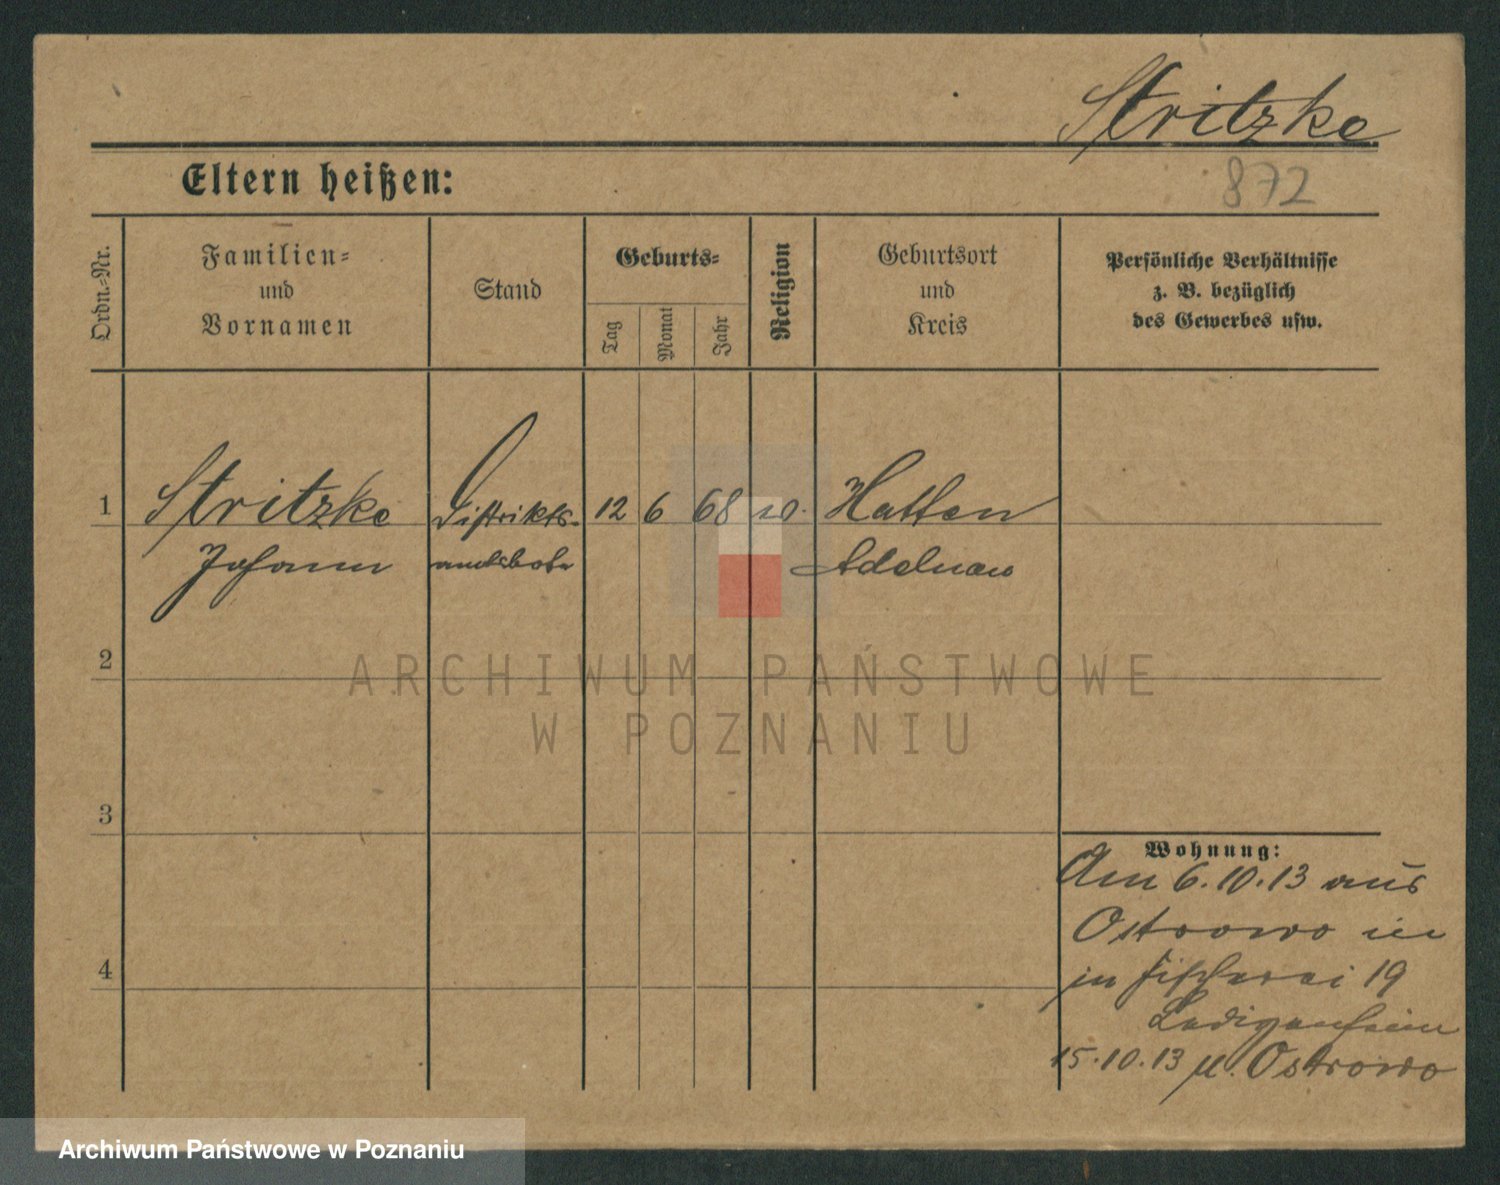 Stritzke
872
Eltern heißen:
Ordn.-Nr.
Familien-
und
Vornamen
Stand
Geburts-
Tag
Monat
Jahr
Religion
Geburtsort
und
Kreis
Persönliche Verhältnisse
z. B. bezüglich
des Gewerbes usw.
1 Stritzke Distrikts- 12 6 68 Hatten
Johann amtsbote Adelnau
2
ARCHIWUM PAŃSTWOWE
W POZNANIU
3
Wohnung:
Am 6.10.13 aus
Ostrowo in
in Fischerei 19
4
Ledigenheim
15.10.13 n. Ostrowo
Archiwum Państwowe w Poznaniu